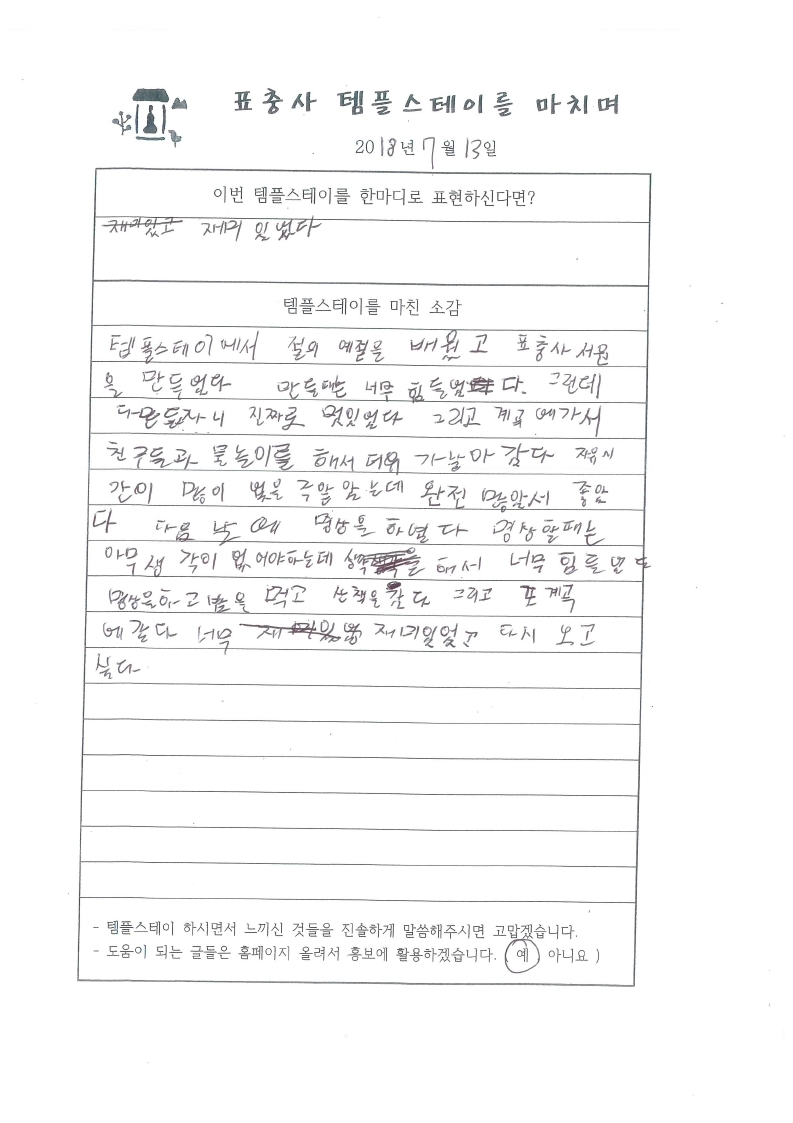 표충사 템플스테이를 마치며
2018년 7월 13일
이번 템플스테이를 한마디로 표현하신다면?
재미있고 재미 있었다
템플스테이를 마친 소감
템플스테이에서 절의 예절을 배웠고 표충사 서원
을 만들었다 만들때는 너무 힘들었다. 그런데
다만들자니 진짜로 멋있었다 그리고 계곡에가서
친구들과 물놀이를 해서 더위 가날아갔다 자유시
간이 많이 없을 주알 았는데 완전 많았서 좋았
다 다음 날에 명상을 하였다 명상할때는
아무 생각이 없어야하는데 해서 너무 힘들었다
명상을하고 밥을 먹고 산책을 갔다 그리고 또 계곡
에갔다 너무 재미있었고 다시 오고
싶다
- 템플스테이 하시면서 느끼신 것들을 진솔하게 말씀해주시면 고맙겠습니다.
- 도움이 되는 글들은 홈페이지 올려서 홍보에 활용하겠습니다. ( 예 , 아니요 )